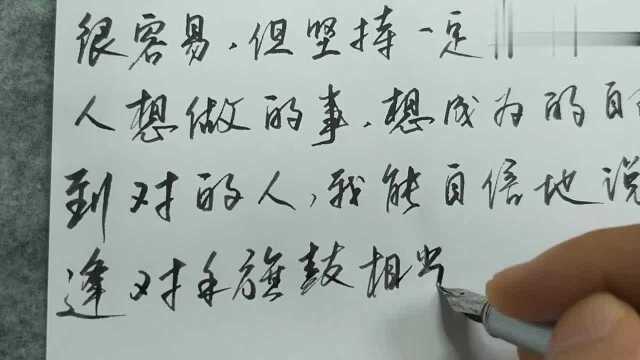 很容易，但坚持一定
人想做的事，想成为的自
到对的人，我能自信地说
逢对手旗鼓相当